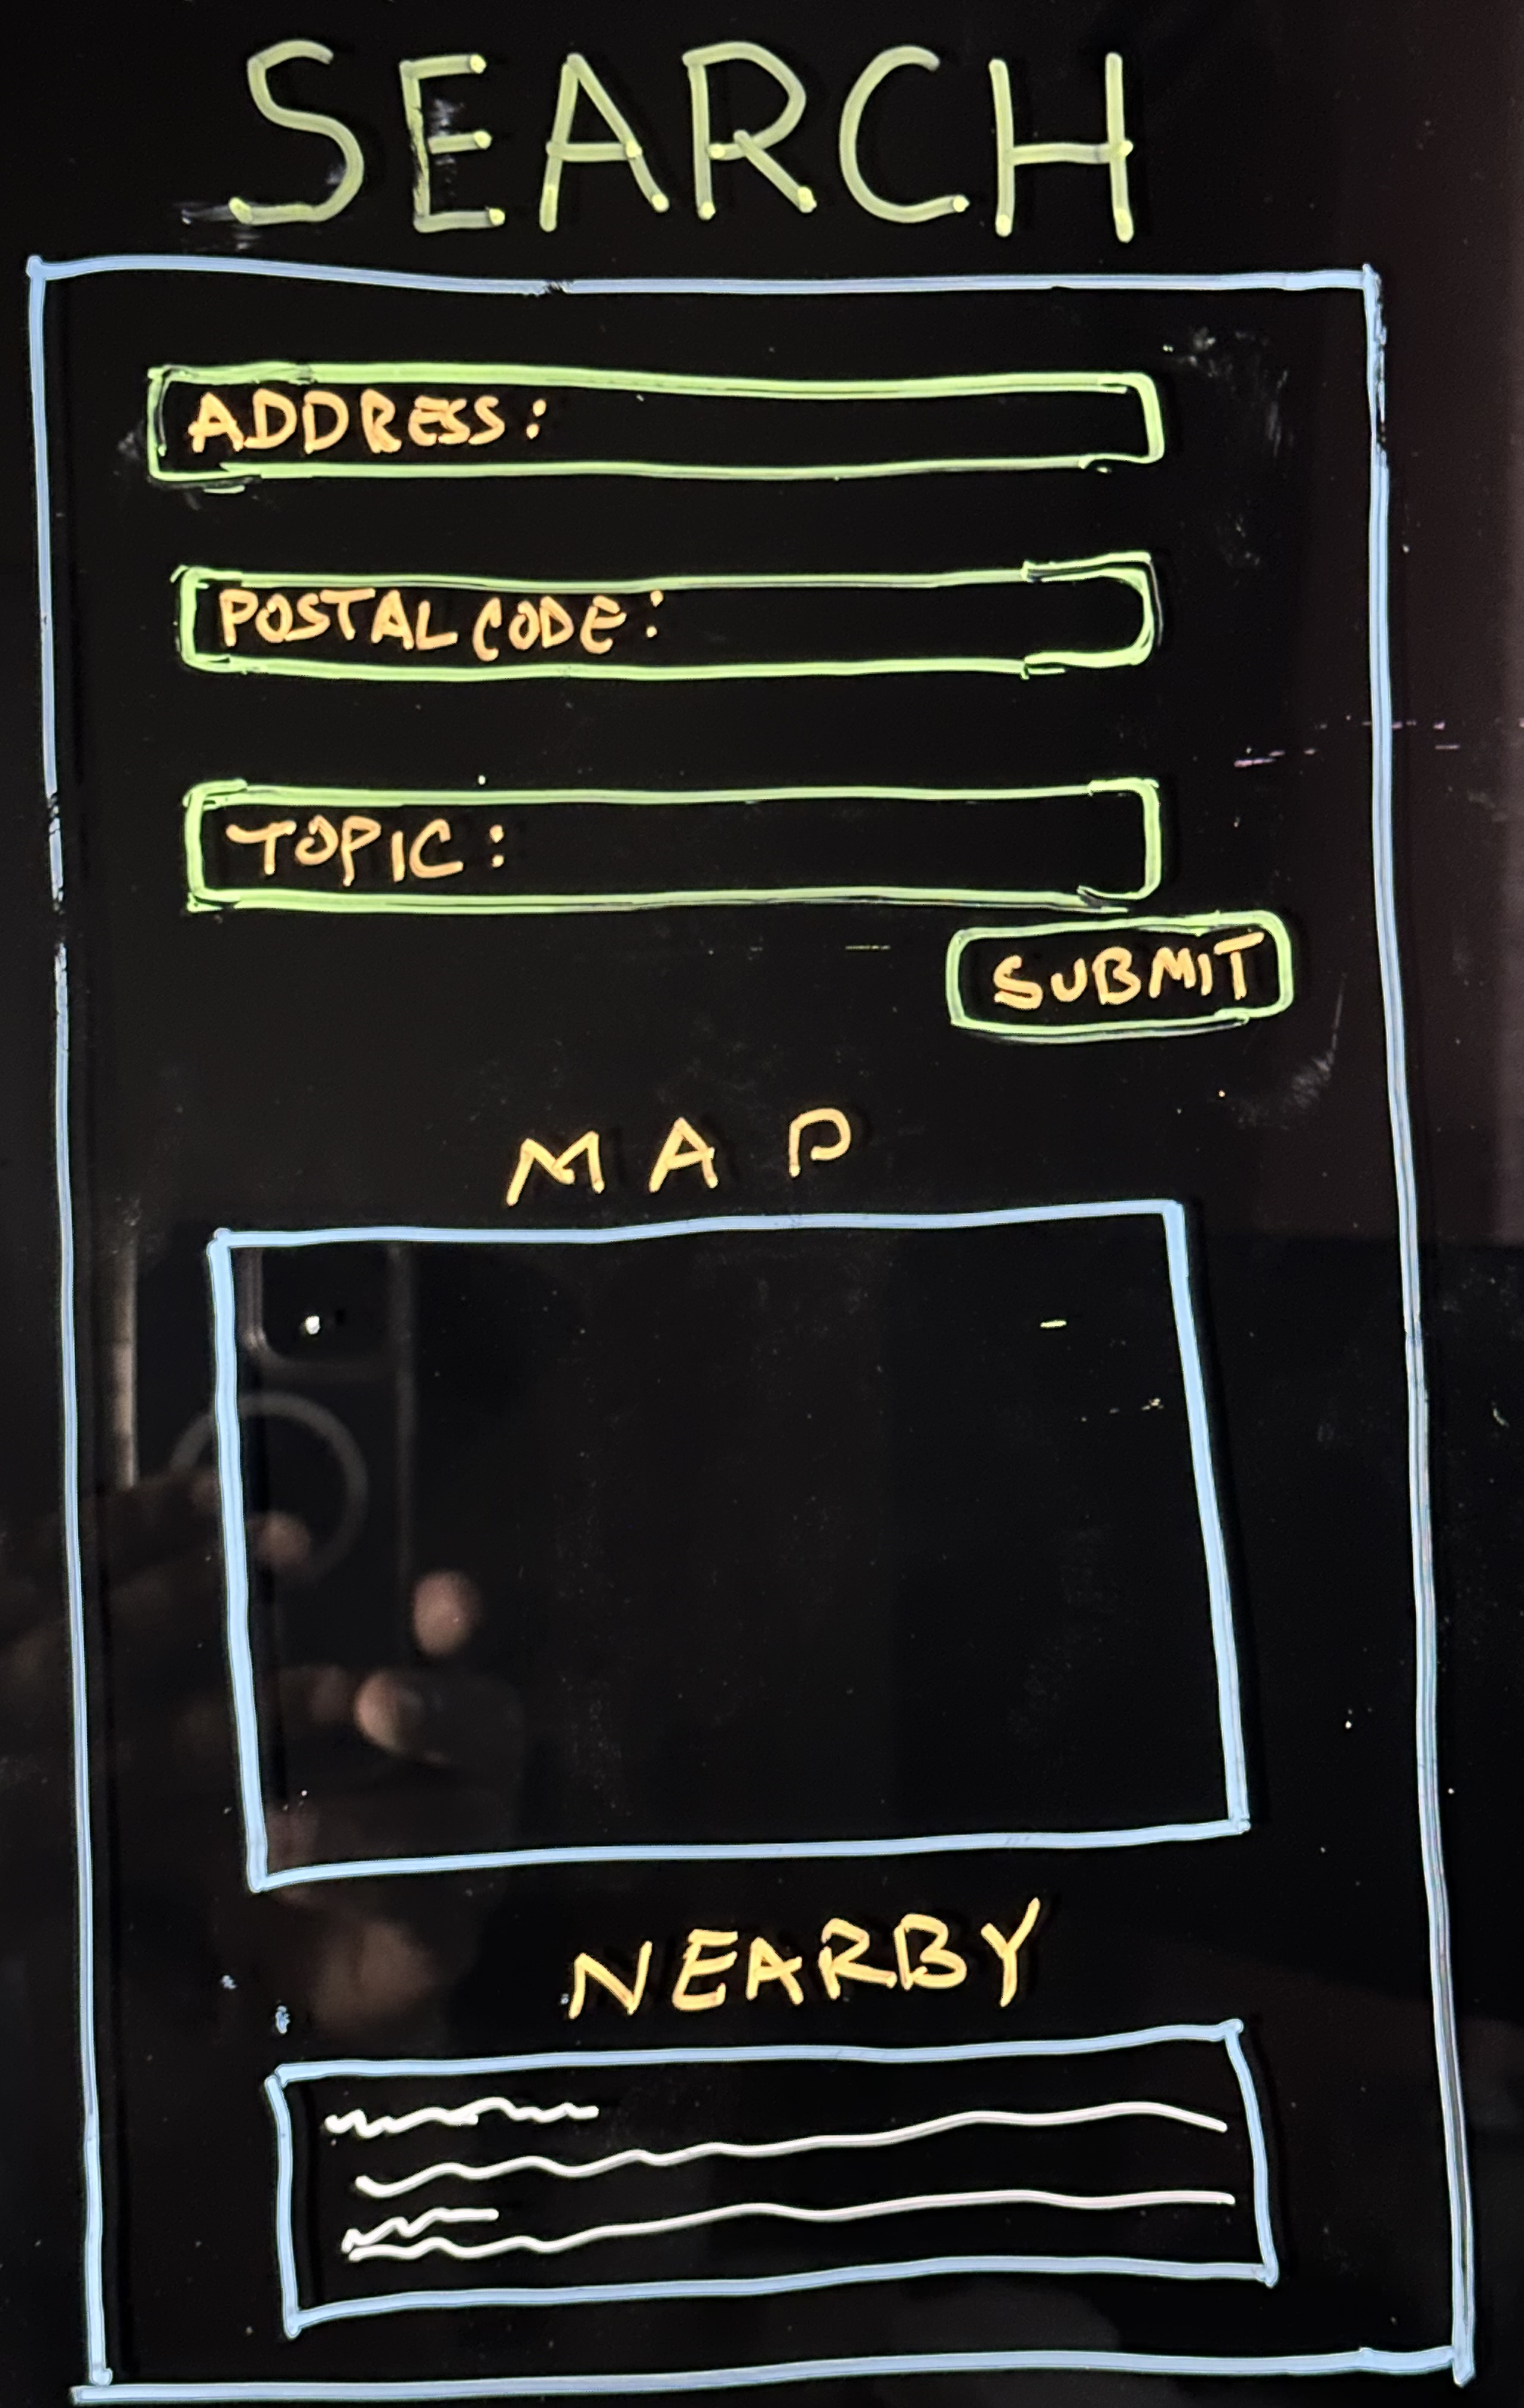 SEARCH
ADDRESS:
POSTAL CODE:
TOPIC:
SUBMIT
MAP
NEARBY